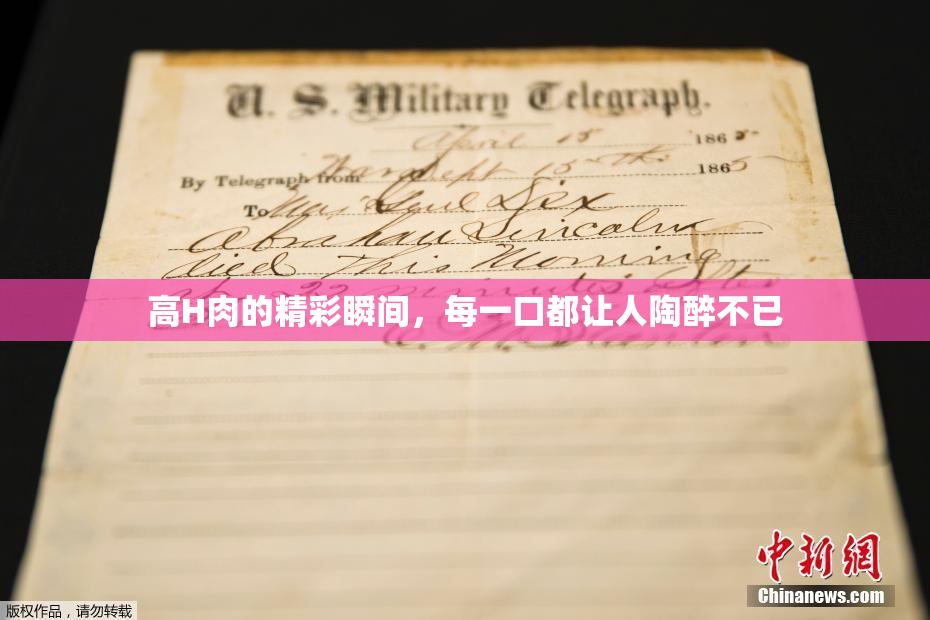 U. S. Military Telegraph.
April 15 1865
By Telegraph from War Dept 15th 1865
To Maj Genl Dix
Abraham Lincoln
died This Morning
22 minutes after
高H肉的精彩瞬间，每一口都让人陶醉不已
E. M. Stanton
中新网
Chinanews.com
版权作品，请勿转载